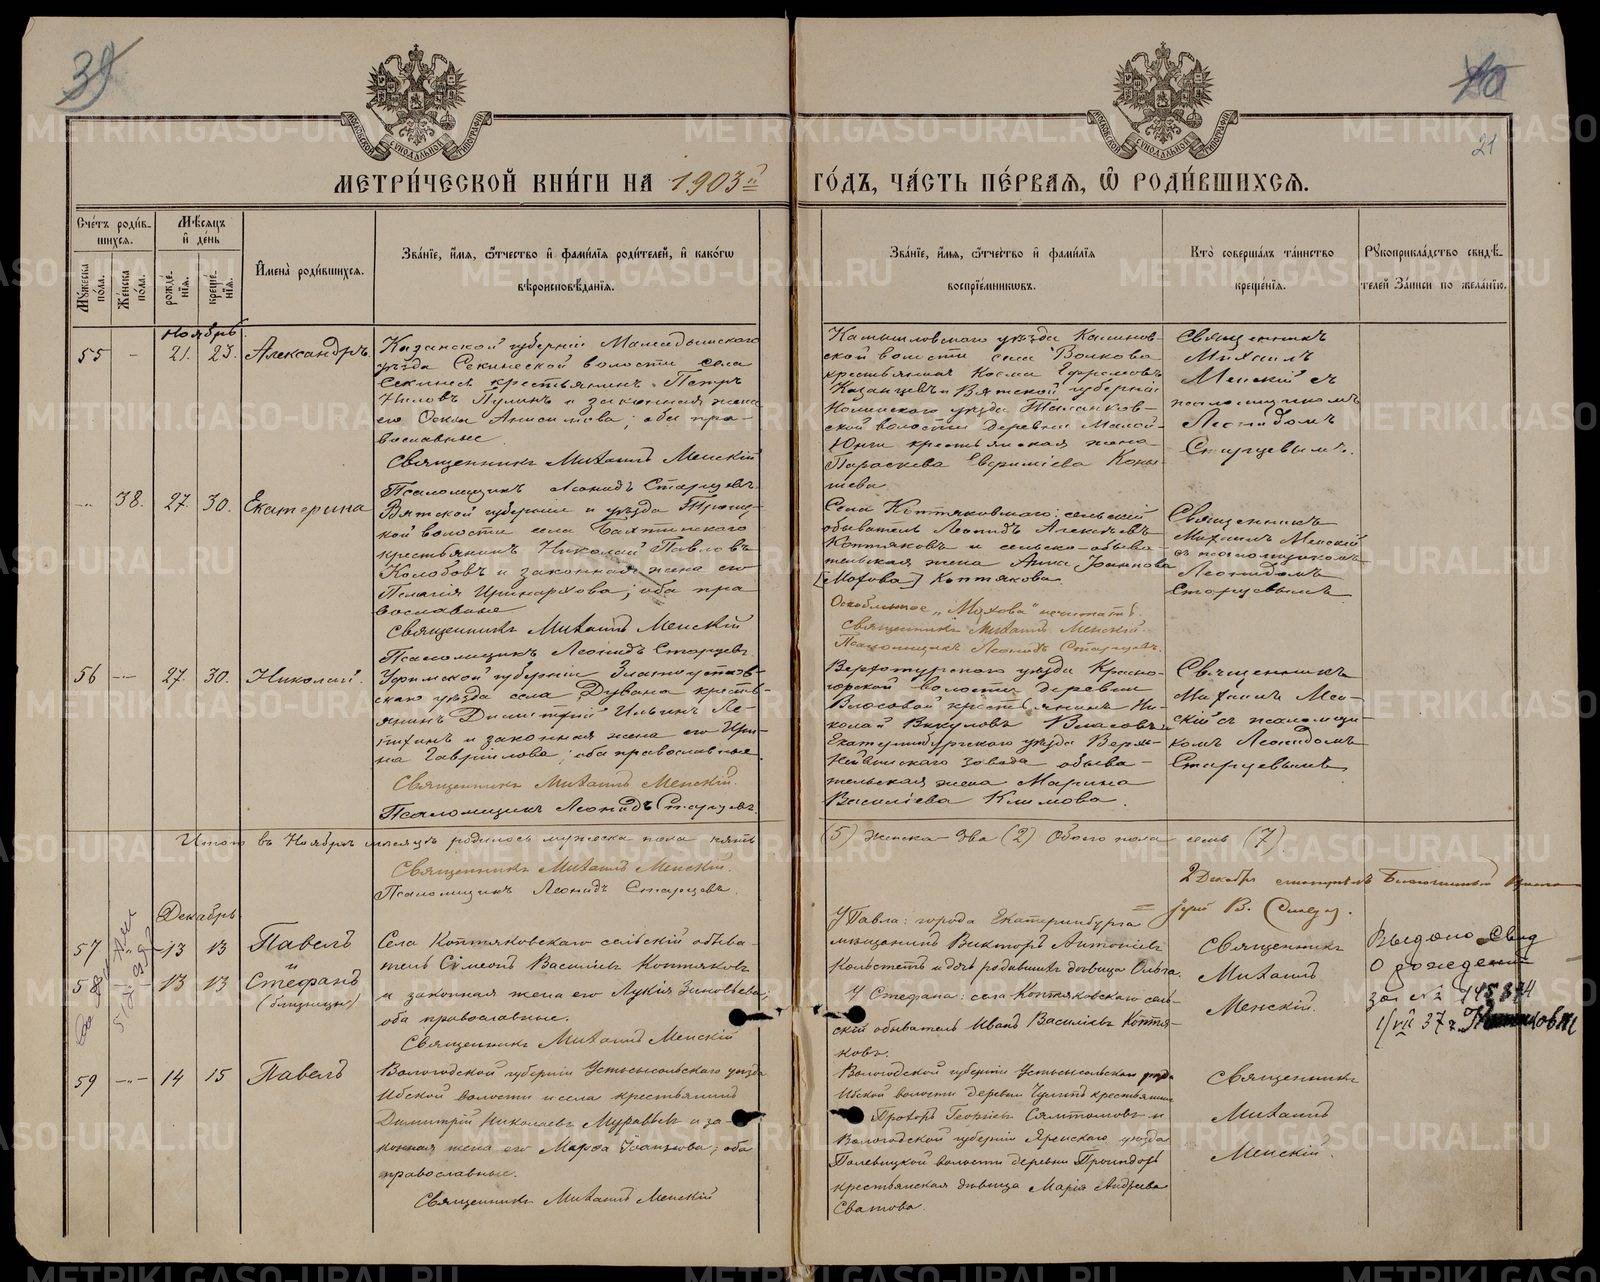 39
40
21
МЕТРИ́ЧЕСКОЙ КНИ́ГИ НА 1903й ГО́ДЪ, ЧА́СТЬ ПЕ́РВАЯ, Ѡ РОДИ́ВШИХСЯ.
Сче́тъ роди́в-
шихся.
Мѣ́сяцъ
и҆ де́нь
Му́жеска
по́ла.
Же́нска
по́ла.
рожде́-
нїя.
креще́-
нїя.
И҆мена̀ роди́вшихся.
Зва́нїе, и҆́мя, ѻ҆́тчество и҆ фами́лїя роди́телей, и҆ како́гѡ
вѣроисповѣ́данїя.
Зва́нїе, и҆́мя, ѻ҆́тчество и҆ фами́лїя
воспрїе́мникѡвъ.
Кто̀ соверша́лъ та́инство
креще́нїя.
Рукоприкла́дство свидѣ́-
телей за́писи по жела́нїю.
Ноябрь
55 - 21. 23. Александръ
Казанской губерніи Мамадышскаго
уѣзда Секинеской волости села
Секинесъ крестьянинъ Петръ
Ниловъ Пулинъ и законная жена
его Анисимова; оба пра-
вославные
Священникъ Михаилъ Менскій
Псаломщикъ Леонидъ Старцевъ
Камышловскаго уѣзда Калинов-
ской волости села Волкова
крестьянинъ Косма Ефремовъ
Казанцевъ и Вятской губерніи
Нолинскаго уѣзда
ской волости деревни Малой
Юнги крестьянская жена
Параскева Евфиміева Коны-
шева
Священникъ
Михаилъ
Менскій съ
псаломщикомъ
Леонидомъ
Старцевымъ.
38. 27. 30. Екатерина
Вятской губерніи и уѣзда Троиц-
кой волости села Бахтинскаго
крестьянинъ Николай Павловъ
Колобовъ и законная жена его
Пелагія Иринархова; оба пра
вославные
Священникъ Михаилъ Менскій
Псаломщикъ Леонидъ Старцевъ.
Села Коптяковскаго сельскій
обыватель Леонидъ Алексѣевъ
Коптяковъ и сельско-обыва-
тельская жена Анна Іоаннова
[Мохова] Коптякова.
Оскобленное „Мохова" нечитать.
Священникъ Михаилъ Менскій.
Псаломщикъ Леонидъ Старцевъ.
Священникъ
Михаилъ Менскій
съ псаломщикомъ
Леонидомъ
Старцевымъ
56 27. 30. Николай.
Уфимской губерніи Златоустов-
скаго уѣзда села Дувана кресть-
янинъ Димитрій Ильинъ Ле-
пихинъ и законная жена его Ири-
на Гавріилова; оба православные
Священникъ Михаилъ Менскій.
Псаломщикъ Леонидъ Старцевъ
Верхотурскаго уѣзда Красно-
горской волости деревни
Власовой крестьянинъ Ни-
колай Викуловъ Власовъ и
Екатеринбургскаго уѣзда Верхъ-
Нейвинскаго завода обыва-
тельская жена Марина
Василіева Климова.
Священникъ
Михаилъ Мен-
скій съ псаломщи-
комъ Леонидомъ
Старцевымъ
Итого въ Ноябрѣ мѣсяцѣ родилось мужеска пола пять (5) женска два (2) Обоего пола семь (7).
Священникъ Михаилъ Менскій.
Псаломщикъ Леонидъ Старцевъ.
2 Декабря смотрѣлъ Благочинный
В.
Декабрь
57 13 13 Павелъ
и
58 13 13 Стефанъ
(близнецы)
Села Коптяковскаго сельскій обыва-
тель Симеонъ Василіевъ Коптяковъ
и законная жена его Лукія Зиновьева;
оба православные.
Священникъ Михаилъ Менскій
У Павла: города Екатеринбурга
мѣщанинъ Викторъ Антоніевъ
и дочь родившихъ дѣвица Ольга.
У Стефана: села Коптяковскаго сель-
скій обыватель Иванъ Василіевъ Коптя-
ковъ.
Священникъ
Михаилъ
Менскій.
Выдано Свид
О рождении
за №
1/VII 37 г.
59 14 15 Павелъ
Вологодской губерніи Устьсысольскаго уѣзда
Ибской волости и села крестьянинъ
Димитрій Николаевъ Муравьевъ и за-
конная жена его Марѳа; оба
православные.
Священникъ Михаилъ Менскій
Вологодской губерніи Устьсысольскаго уѣзда
Ибской волости деревни крестьянинъ
Прохоръ Георгіевъ и
Вологодской губерніи Яренскаго уѣзда
волости деревни
крестьянская дѣвица Марія Андреева
Сватова.
Священникъ
Михаилъ
Менскій.
METRIKI.GASO-URAL.RU